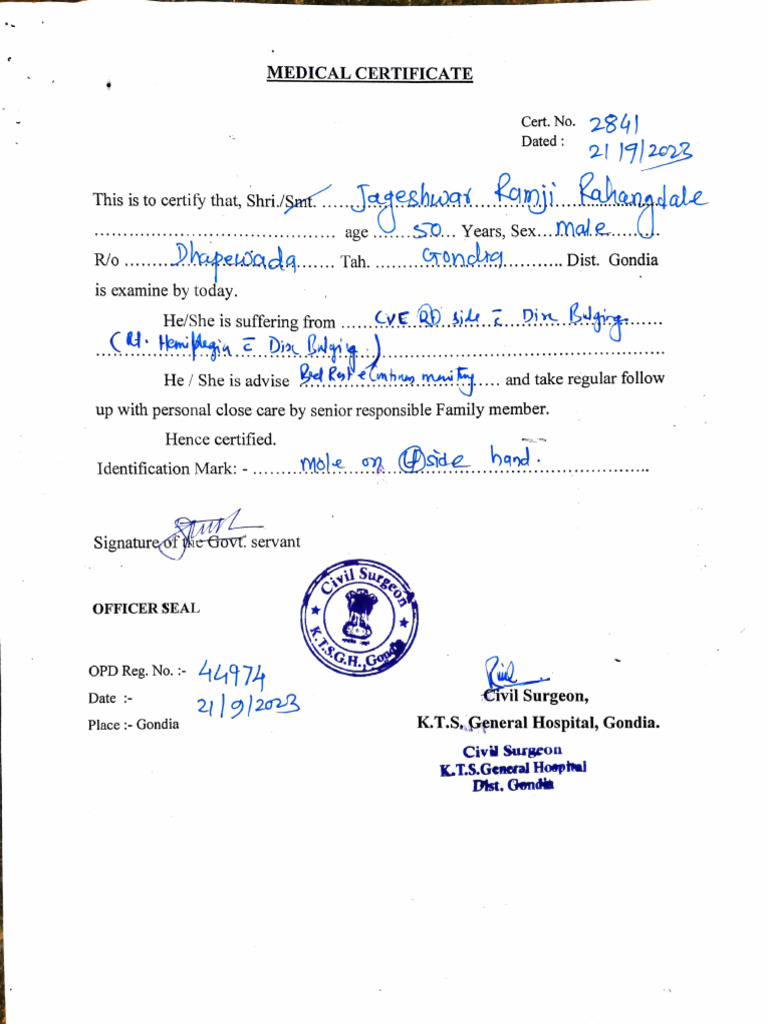 MEDICAL CERTIFICATE
Cert. No. 2841
Dated : 21/9/2023
This is to certify that, Shri./Smt. ...... Jageshwar Ramji Rahangdale
...................................... age ....... 50 ... Years, Sex...male..........
R/o ......... Dhapewada ....... Tah. ......... Gondia ........... Dist. Gondia
is examine by today.
He/She is suffering from ...... CVE Rt side c̄ Disc Bulging.......
(Rt. Hemiplegia c̄ Disc Bulging)
He / She is advise Bed Rest & Continus ..... and take regular follow
up with personal close care by senior responsible Family member.
Hence certified.
Identification Mark: - ......... mole on Lt side hand. ..................
Signature of the Govt. servant
OFFICER SEAL
Civil Surgeon
K.T.S.G.H., Gondia
OPD Reg. No. :- 44974
Date :- 21/9/2023
Place :- Gondia
Civil Surgeon,
K.T.S. General Hospital, Gondia.
Civil Surgeon
K.T.S.General Hospital
Dist. Gondia